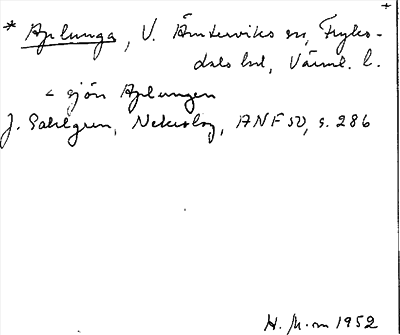 * Aplunga, V. Ämterviks sn, Fryks-
dals hd, Värml. l.
< sjön Aplungen
J. Sahlgren, Nekrolog, ANF 50, s. 286
H. M-m 1952